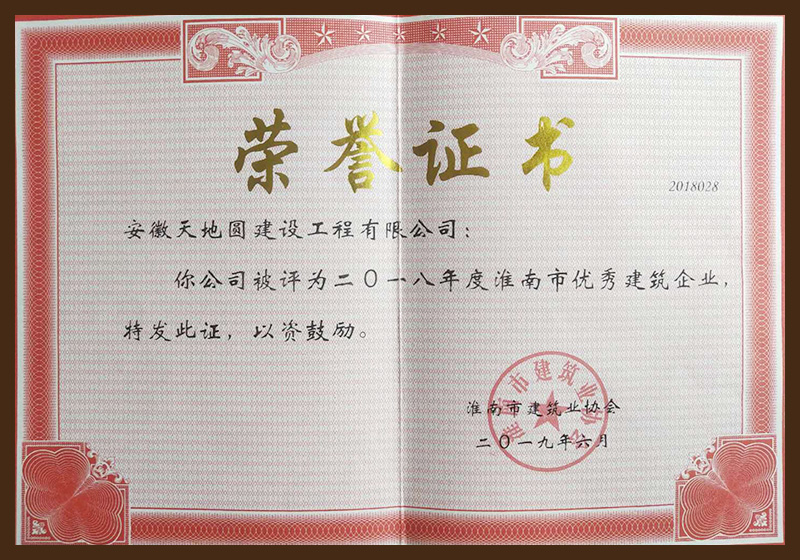 荣誉证书
2018028
安徽天地圆建设工程有限公司：
你公司被评为二〇一八年度淮南市优秀建筑企业，
特发此证，以资鼓励。
淮南市建筑业协会
淮南市建筑业协会
二〇一九年六月